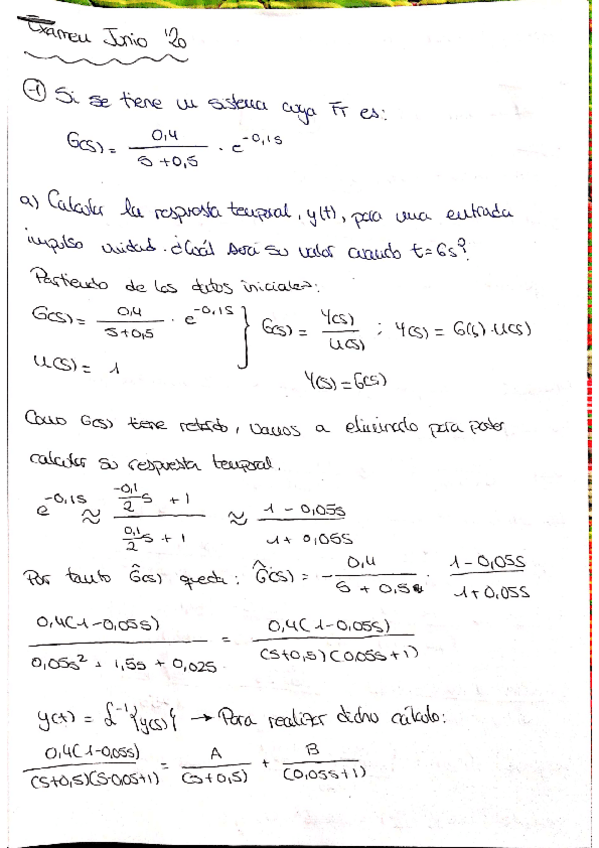 Examen Junio '20
① Si se tiene un sistema cuya FT es:
G(s) = 0,4 / (s + 0,5) · e^(-0,1s)
a) Calcular la respuesta temporal, y(t), para una entrada
impulso unidad. ¿Cuál será su valor cuando t=6s?
Partiendo de los datos iniciales:
G(s) = 0,4 / (s+0,5) · e^(-0,1s) } G(s) = Y(s) / U(s) ; Y(s) = G(s)·U(s)
U(s) = 1 Y(s) = G(s)
Como G(s) tiene retardo, vamos a eliminarlo para poder
calcular su respuesta temporal.
e^(-0,1s) ≈ (-0,1/2 s + 1) / (0,1/2 s + 1) ≈ (1 - 0,05s) / (1 + 0,05s)
Por tanto Ĝ(s) queda: Ĝ(s) = 0,4 / (s + 0,5) · (1 - 0,05s) / (1 + 0,05s)
0,4(1-0,05s) / (0,05s² + 1,5s + 0,025) = 0,4(1-0,05s) / ((s+0,5)(0,05s+1))
y(t) = ℒ⁻¹{y(s)} → Para realizar dicho cálculo:
0,4(1-0,05s) / ((s+0,5)(s·0,05+1)) = A / (s+0,5) + B / (0,05s+1)